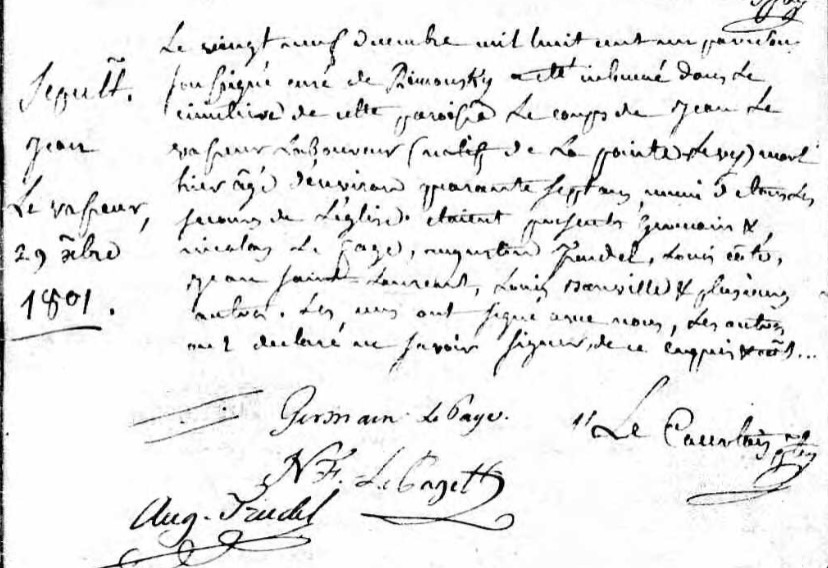 Sepult.
Jean
Le vasseur,
29 Xbre
1801.
Le vingt neuf decembre mil huit cent un par nous
soussigné curé de Rimousky a eté inhumé dans Le
cimetiere de cette paroisse Le corps de Jean Le
vasseur Laboureur (natif de La pointe Levy) mort
hier agé d'environ quarante sept ans, muni de tous Les
secours de L'église. etaient presents Germain &
nicolas Le page, augustin Trudel, Louis
Jean saint Laurent, Louis Banville & plusieurs
autres. Les uns ont signé avec nous, Les autres
ont declaré ne savoir signer, de ce enquis
Germain LePage.
N F. LePage
Aug. Trudel
Le Courtois